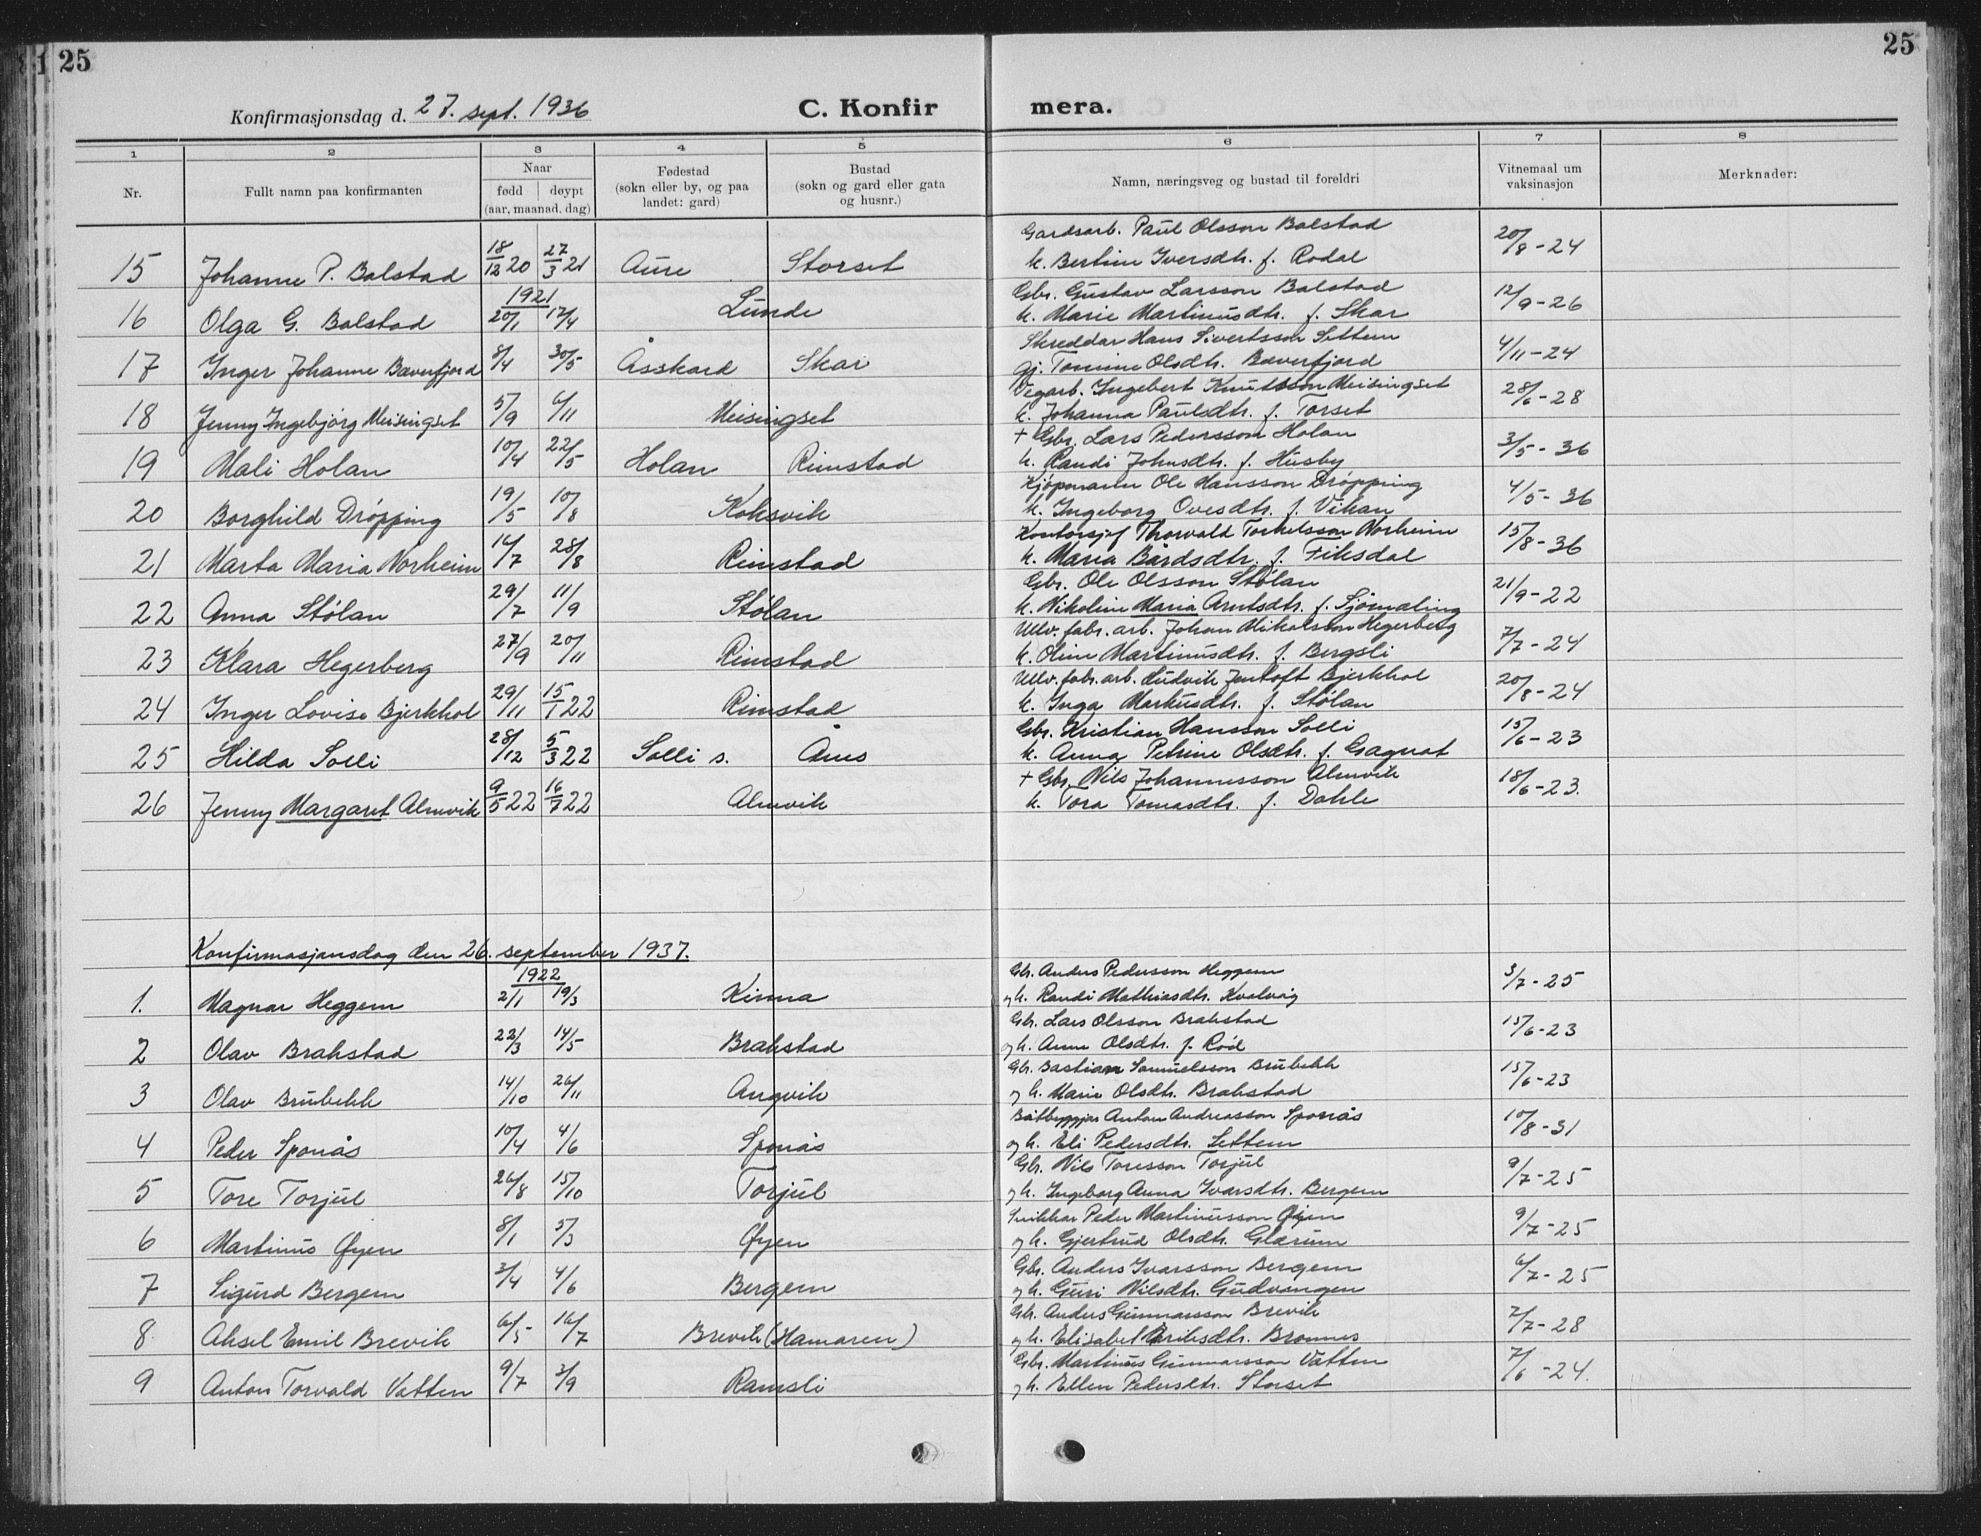 25
25
Konfirmasjonsdag d. 27. sept. 1936
C. Konfir mera.
1 2 3 4 5 6 7 8
Nr.
Fullt namn paa konfirmanten
Naar
fødd døypt
(aar, maanad, dag)
Fødestad
(sokn eller by, og paa
landet: gard)
Bustad
(sokn og gard eller gata
og husnr.)
Namn, næringsveg og bustad til foreldri
Vitnemaal um
vaksinasjon
Merknader:
Gardsarb. Paul Olsson Bolstad
15 Johanne P. Bolstad 18/12 20 27/3 21 Aure Storset k. Bertine Iversdtr. f. Rodal 20/8-24
Gbr. Gustav Larsson Bolstad
1921
16 Olga G. Bolstad 20/1 17/4 Lunde k. Marie Martinusdtr. f. Skar 12/9-26
Skreddar Hans Sivertsson Settem
17 Inger Johanne Bæverfjord 8/4 30/5 Åsskard Skar gj. Tomine Olsdtr. Bæverfjord 4/11-24
Vegarb. Ingebert Knutsson Meisingset
18 Jenny Ingebjørg Meisingset 5/9 6/11 Meisingset k. Johanna Paulsdtr. f. Torset 28/6-28
+ Gbr. Lars Pedersson Holan
19 Mali Holan 10/4 22/5 Holan Rimstad k. Randi Johnsdtr. f. Husby 3/5-36
Kjøpmann Ole Hansson Drøpping
20 Borghild Drøpping 19/5 10/8 Koksvik k. Ingeborg Ovesdtr. f. Vikan 4/5-36
Kontorsjef Thorvald Torkelsson Norheim
21 Marta Maria Norheim 16/7 28/8 Rimstad k. Maria Bårdsdtr. f. Fiksdal 15/8-36
Gbr. Ole Olsson Stølan
22 Anna Stølan 29/7 11/9 Stølan k. Nikoline Maria Arntsdtr. f. Sjömæling 21/9-22
Ullv. fabr. arb. Johan Mikalsson Hegerberg
23 Klara Hegerberg 27/9 20/11 Rimstad k. Oline Martinusdtr. f. Bergsli 7/7-24
Ullv. fabr. arb. Ludvik Jentoft Bjerkhol
24 Inger Lovise Bjerkhol 29/11 15/1 22 Rimstad k. Inga Markusdtr. f. Stølan 20/8-24
Gbr. Kristian Hansson Solli
25 Hilda Solli 28/12 5/3 22 Solli s. Ånes k. Anna Petrine Olsdtr. f. Gagnat 15/6-23
+ Gbr. Nils Johannesson Almvik
26 Jenny Margaret Almvik 9/5 22 16/7 22 Almvik k. Tora Tomasdtr. f. Dahle 18/6-23.
Konfirmasjonsdag den 26. september 1937.
1922
Gb. Anders Pedersson Heggem
1. Magnar Heggem 2/1 19/3 Kinna og k. Randi Mathiasdtr. Kvalvåg 3/7-25
Gb. Lars Olsson Brakstad
2 Olav Brakstad 22/3 14/5 Brakstad og k. Anne Olsdtr. f. Röd 15/6-23
Gb. Bastian Samuelsson Brubekk
3 Olav Brubekk 14/10 26/11 Angvik og k. Marie Olsdtr. Brakstad 15/6-23
Båtbyggjar Anton Andreasson Sponås
4 Peder Sponås 10/4 4/6 Sponås og k. Eli Pedersdtr. Settem 10/8-31
Gb. Nils Toresson Torjul
5 Tore Torjul 26/8 15/10 Torjul og k. Ingeborg Anna Ivarsdtr. Bergem 9/7-25
Snikkar Peder Martinusson Øyen
6 Martinus Øyen 8/1 5/3 Øyen og k. Gjertrud Olsdtr. Glærum 9/7-25
Gbr. Anders Ivarsson Bergem
7 Sigurd Bergem 3/4 4/6 Bergem og k. Guri Nilsdtr. Gudvangen 6/7-25
Gb. Anders Gunnarsson Brevik
8 Aksel Emil Brevik 6/5 16/7 Brevik (Hamaren) og k. Elisabet Eriksdtr. Bronnes 7/7-28
Gbr. Martinus Gunnarsson Vatten
9 Anton Torvald Vatten 9/7 3/9 Ramsli og k. Ellen Pedersdtr. Storset 7/6-24.